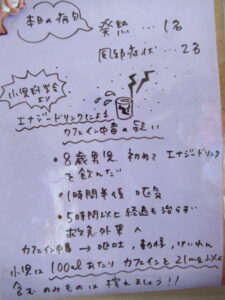 本日の病名
発熱…1名
風邪症状…2名
小児科学会より
エナジードリンクによる
カフェイン中毒の疑い
・8歳男児 初めてエナジードリンク
を飲んだ
・1時間半後 嘔気
・5時間以上経過も治らず
救急外来へ
カフェイン中毒→嘔吐,動悸,けいれん
小児は100mlあたりカフェイン21mg以上
含むのみものは控えましょう!!